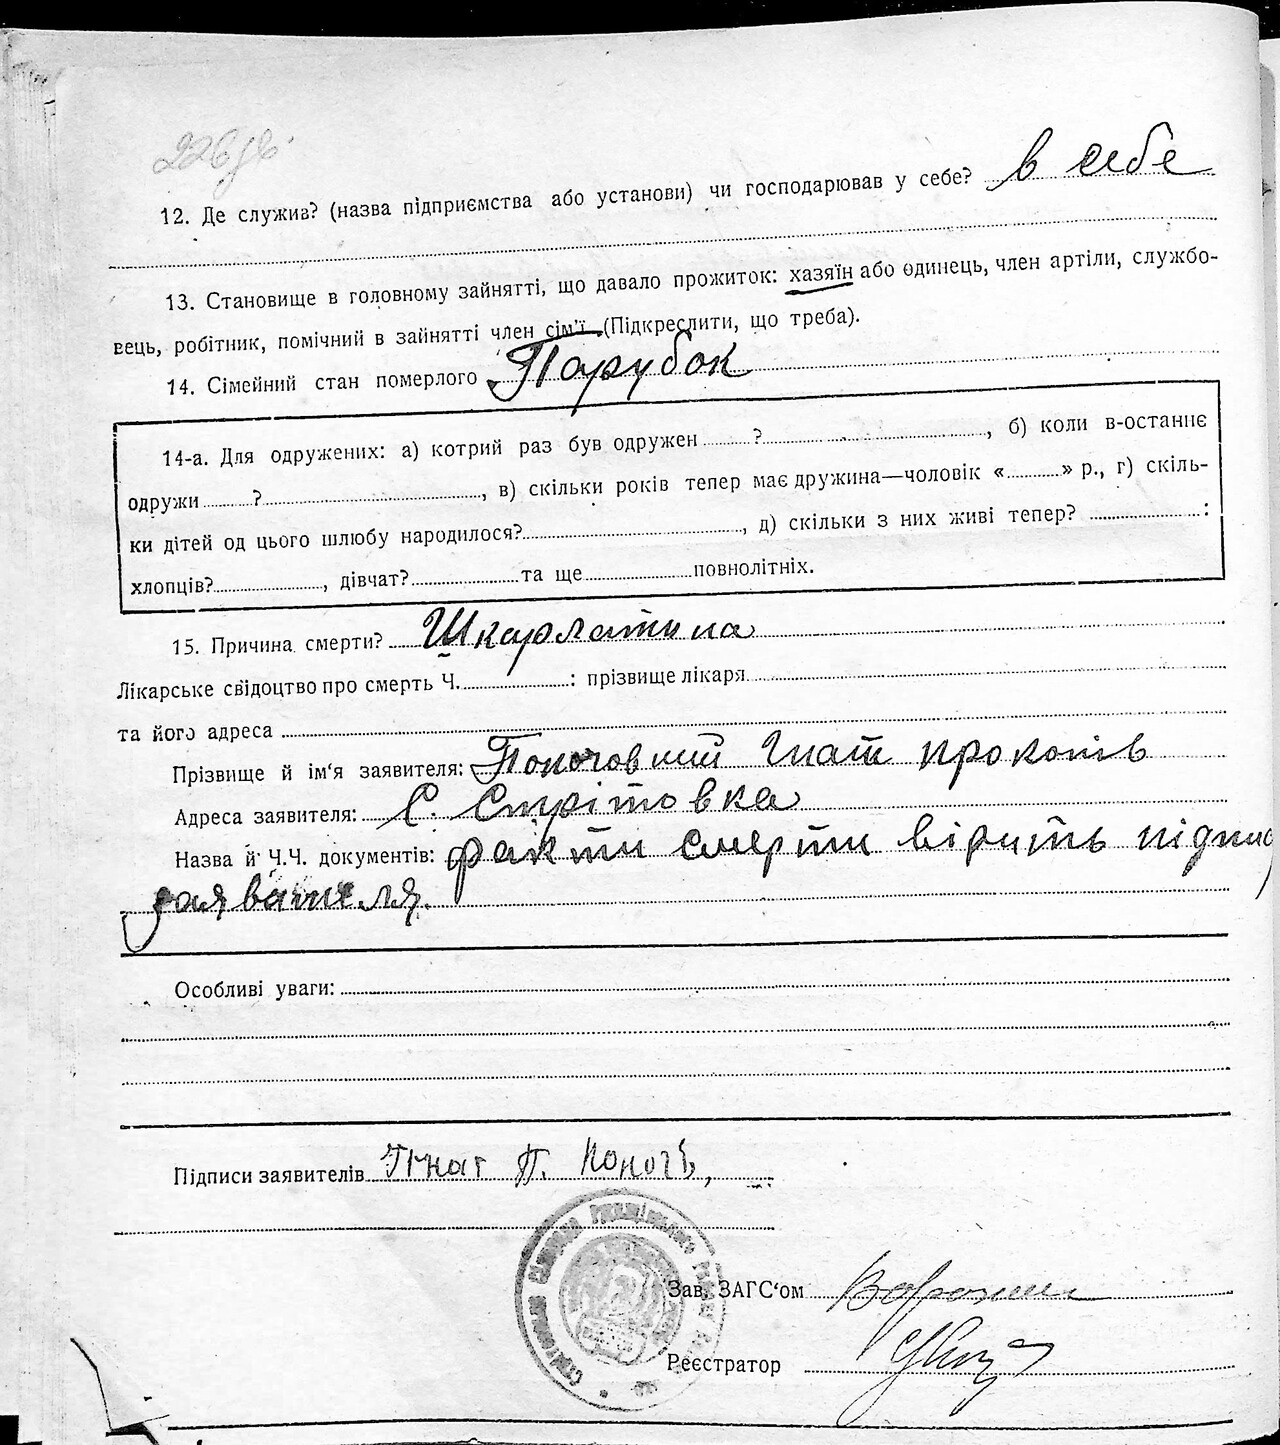 226 зв.
12. Де служив? (назва підприємства або установи) чи господарював у себе? в себе
13. Становище в головному зайнятті, що давало прожиток: хазяїн або одинець, член артіли, службо-
вець, робітник, помічний в зайнятті член сім'ї (Підкреслити, що треба).
14. Сімейний стан померлого Парубок
14-а. Для одружених: а) котрий раз був одружен ? , б) коли в-останнє
одружи ? , в) скільки років тепер має дружина—чоловік « » р., г) скіль-
ки дітей од цього шлюбу народилося? , д) скільки з них живі тепер? :
хлопців? , дівчат? та ще повнолітніх.
15. Причина смерти? Шкарлатина
Лікарське свідоцтво про смерть Ч. : прізвище лікаря
та його адреса
Прізвище й ім'я заявителя: Гнат Прокопів
Адреса заявителя: С. Стрітовка
Назва й Ч.Ч. документів: факти смерти вірить підпис
заявителя.
Особливі уваги:
Підписи заявителів Гнат П.
Зав. ЗАГС'ом
Реєстратор